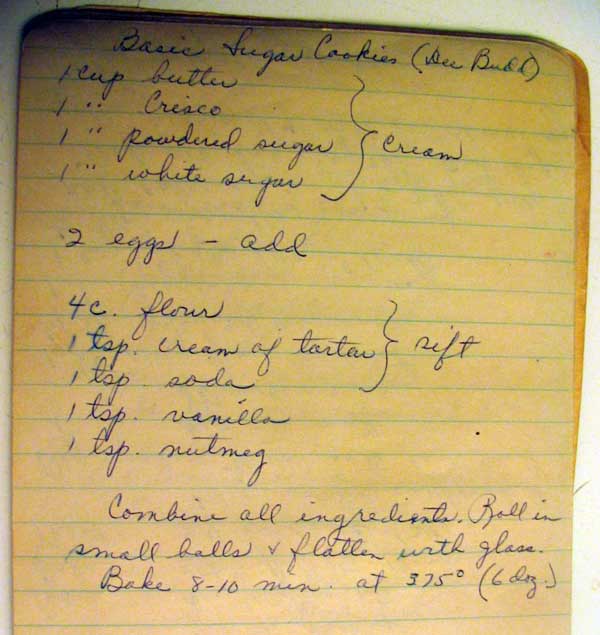 Basic Sugar Cookies (Dee Budd)
1 cup butter
1 " Crisco
1 " powdered sugar } Cream
1 " white sugar
2 eggs - add
4 c. flour
1 tsp. cream of tartar } sift
1 tsp. soda
1 tsp. vanilla
1 tsp. nutmeg
Combine all ingredients. Roll in
small balls & flatten with glass.
Bake 8-10 min. at 375° (6 doz.)